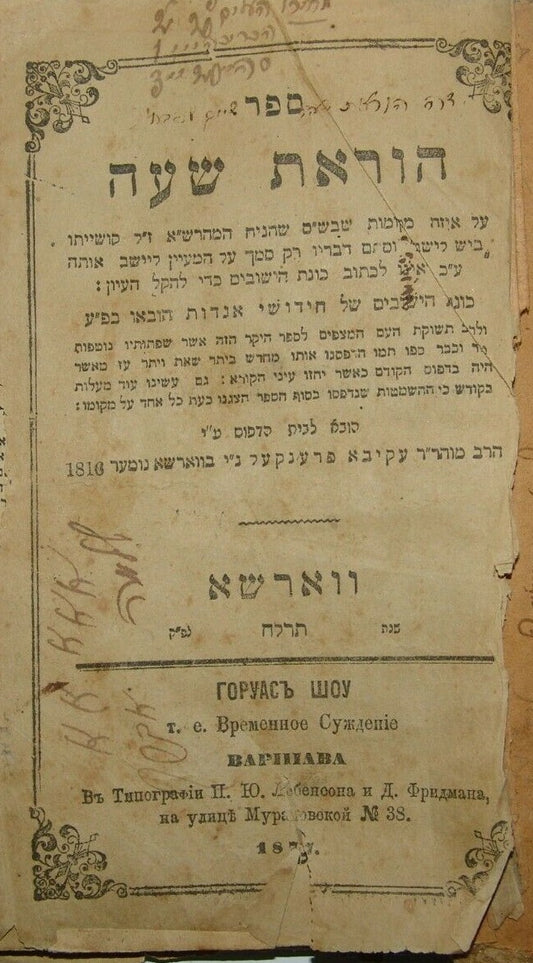 ספר
הוראת שעה
על איזה מקומות שבש"ס שהניח המהרש"א ז"ל קושייתו
ביש לישב וסתם דבריו רק סמך על המעיין ליישב אותה
ע"כ לכתוב כונת הישובים כדי להקל העיון :
כונת הישובים של חידושי אגדות הובאו בפ"ע
ולרב תשוקת העם המצפים לספר היקר הזה אשר שפתותיו נוטפות
וכבר כפו תמו הדפסנו אותו מחדש ביתר שאת ויתר עז מאשר
היה בדפוס הקודם כאשר יחזו עיני הקורא : גם עשינו עוד מעלות
בקודש כי ההשמטות שנדפסו בסוף הספר הצגנו כעת כל אחד על מקומו :
הובא לבית הדפוס ע"י
הרב מוהר"ר עקיבא פרענקעל נ"י בווארשא נומער 1816
ווארשא
שנת תרלח לפ"ק
ГОРУАСЪ ШОУ
т. е. Временное Сужденіе
ВАРШАВА
Въ Типографіи И. Ю. Лебенсона и Д. Фридмана,
на улицѣ Мурановской № 38.